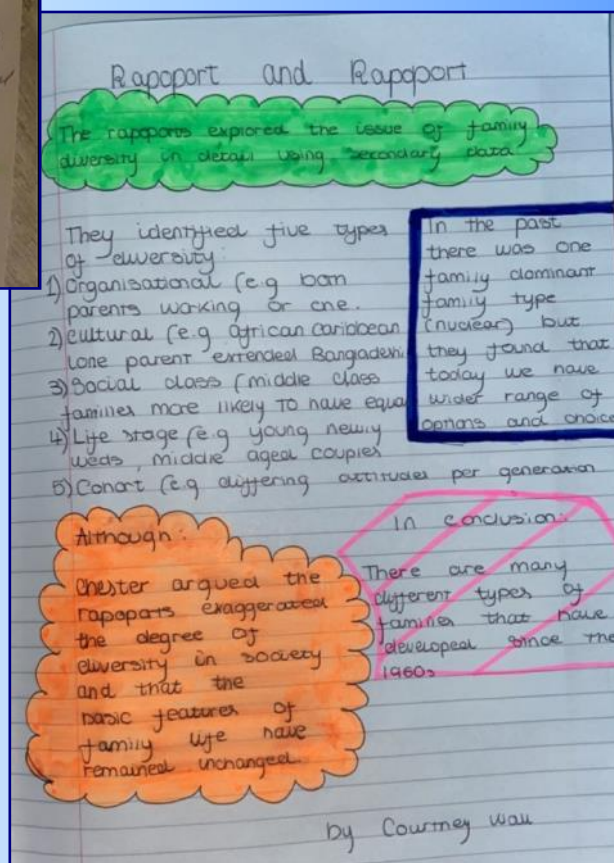 Rapoport and Rapoport
The rapoports explored the issue of family
diversity in detail using secondary data
They identified five types
of diversity:
1) Organisational (e.g both
parents working or one.
2) cultural (e.g african caribbean
lone parent extended Bangadeshi
3) Social class (middle class
families more likely to have equa
4) Life stage (e.g young newly
weds, middle aged couples
5) Cohort (e.g differing attitudes per generation
In the past
there was one
family dominant
family type
(nuclear) but
they found that
today we have
wider range of
options and choice
Although:
Chester argued the
rapoports exaggerated
the degree of
diversity in society
and that the
basic features of
family life have
remained unchanged.
In conclusion:
There are many
different types of
families that have
developed since the
1960s
by Courtney Wall